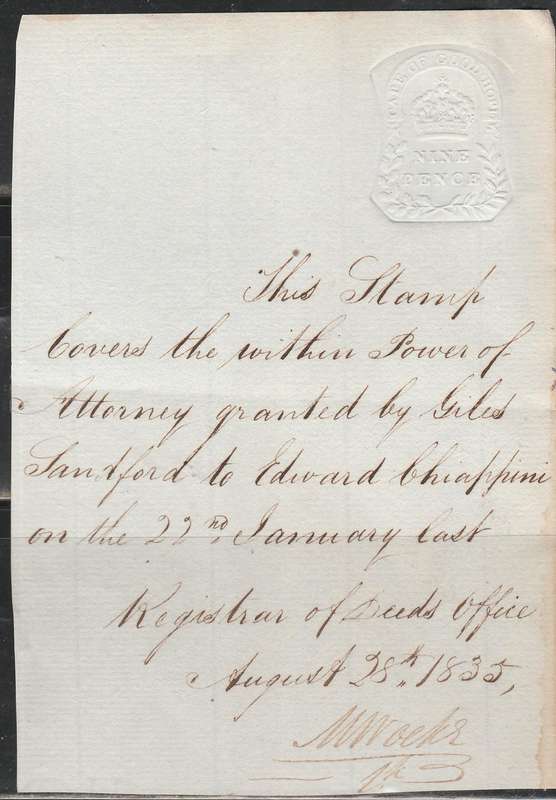 CAPE OF GOOD HOPE
NINE
PENCE
This Stamp
Covers the within Power of
Attorney granted by Giles
Sandford to Edward Chiappini
on the 22nd. January last
Registrar of Deeds Office
August 28th. 1835,